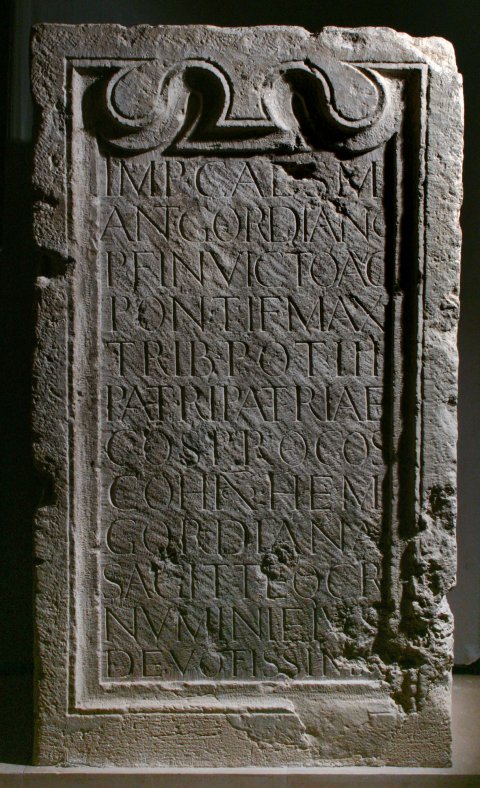 IMP·CAES·M
ANT·GORDIANO
P·F·INVICTO AG
PONTIF·MAX
TRIB·POT·IIII
PATRI PATRIAE
COS PROCOS
COH·I·HEM
GORDIAN
SAGITT EQ C R
NVMINI EI
DEVOTISSIM